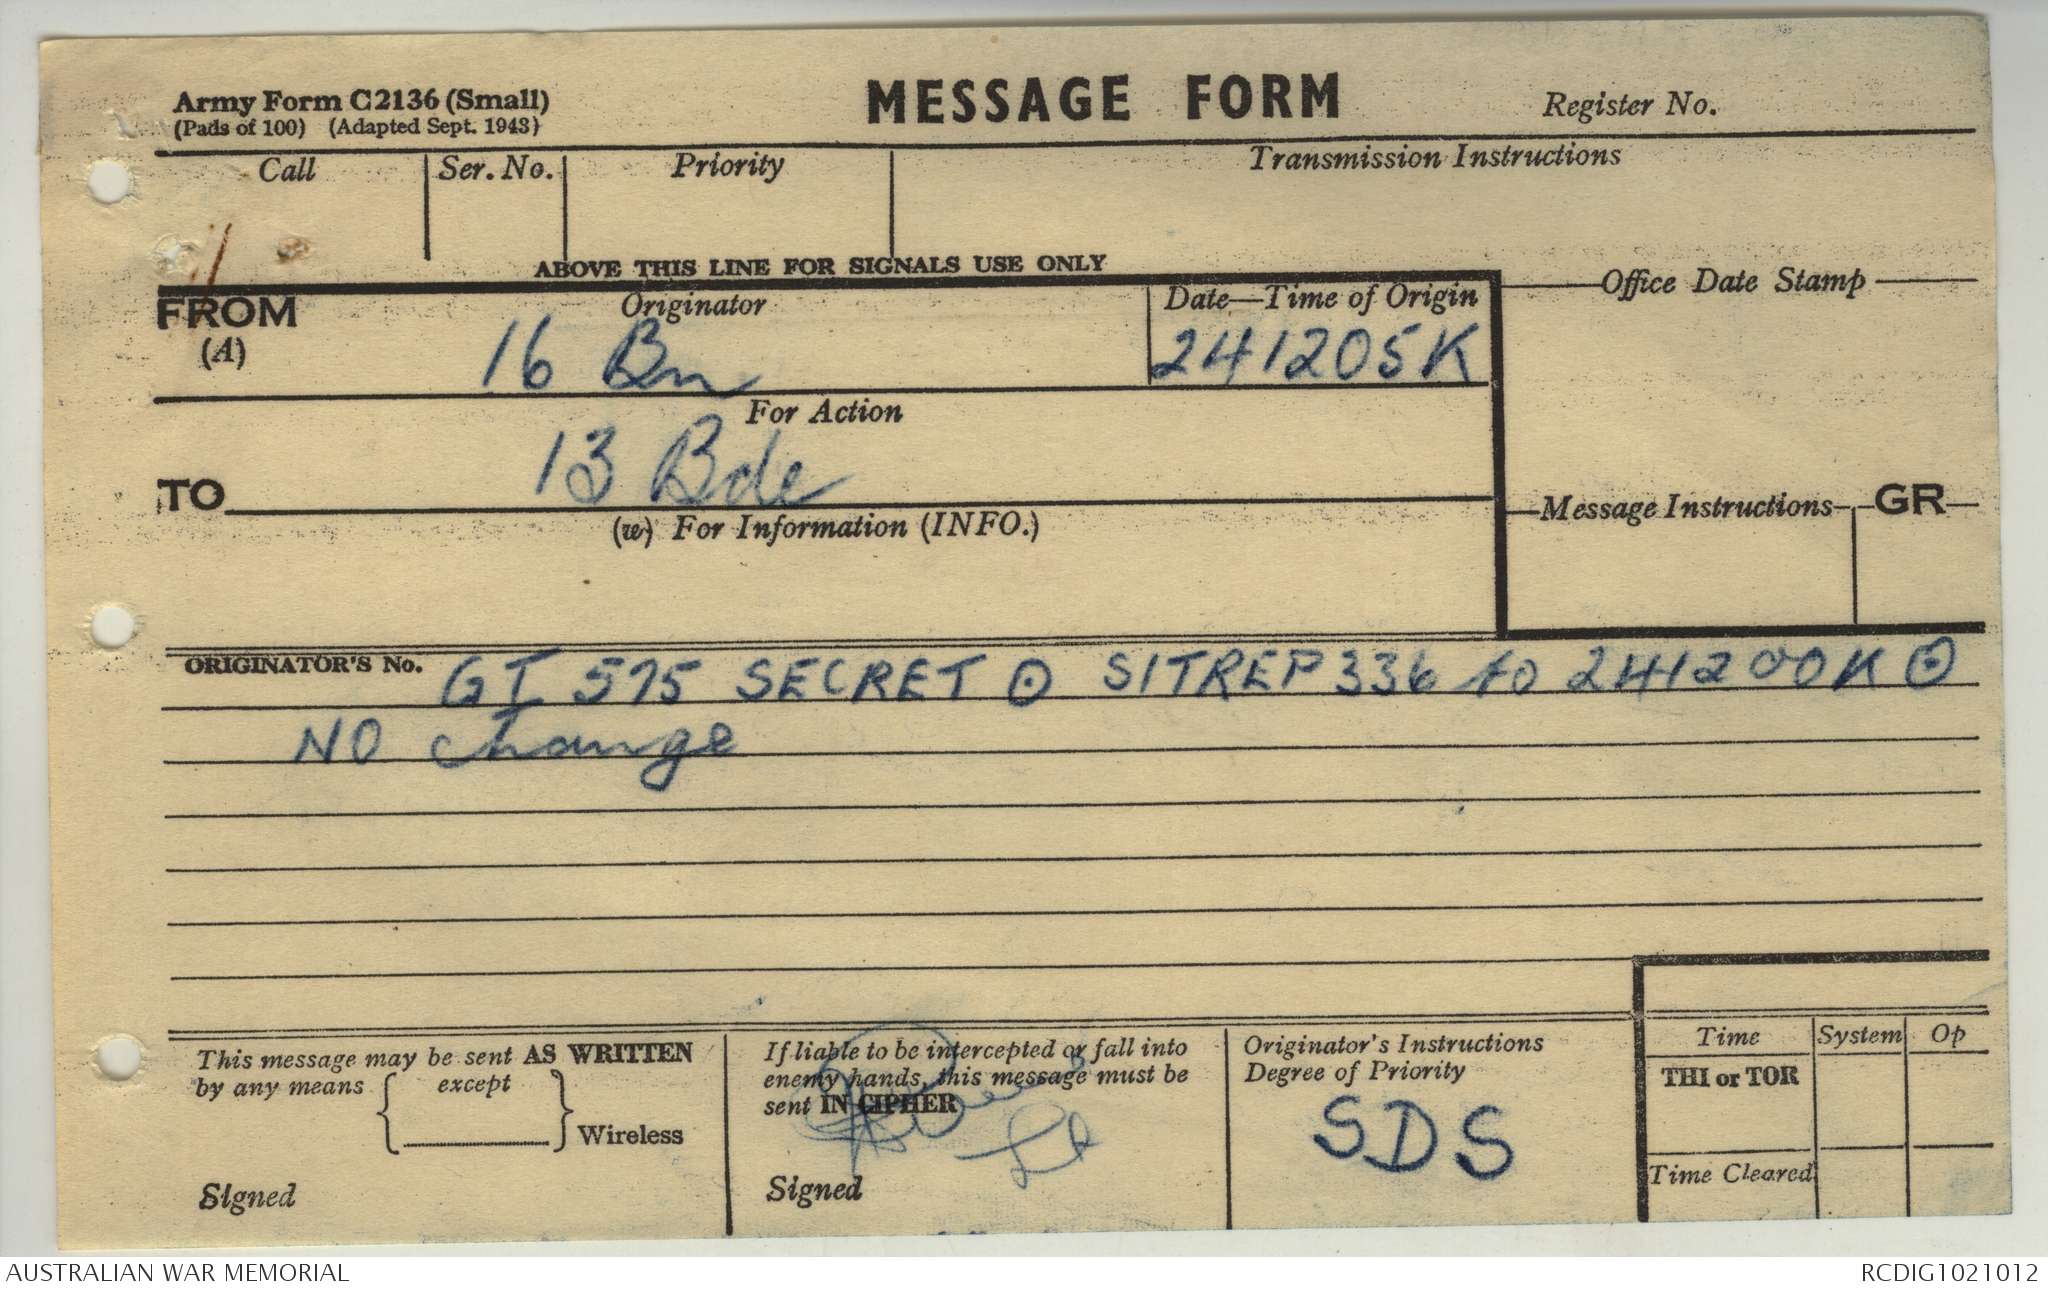 Army Form C2136 (Small)
(Pads of 100) (Adapted Sept. 1943)
MESSAGE FORM
Register No.
Call
Ser. No.
Priority
Transmission Instructions
ABOVE THIS LINE FOR SIGNALS USE ONLY
FROM
(A)
Originator
16 Bn
Date—Time of Origin
241205K
Office Date Stamp
For Action
TO
13 Bde
(w) For Information (INFO.)
Message Instructions
GR
ORIGINATOR'S No. GI 575 SECRET ⊙ SITREP 336 to 241200K ⊙
NO change
This message may be sent AS WRITTEN
by any means { except
} Wireless
Signed
If liable to be intercepted or fall into
enemy hands, this message must be
sent IN CIPHER
Lt
Signed
Originator's Instructions
Degree of Priority
SDS
Time
System
Op
THI or TOR
Time Cleared
AUSTRALIAN WAR MEMORIAL
RCDIG1021012